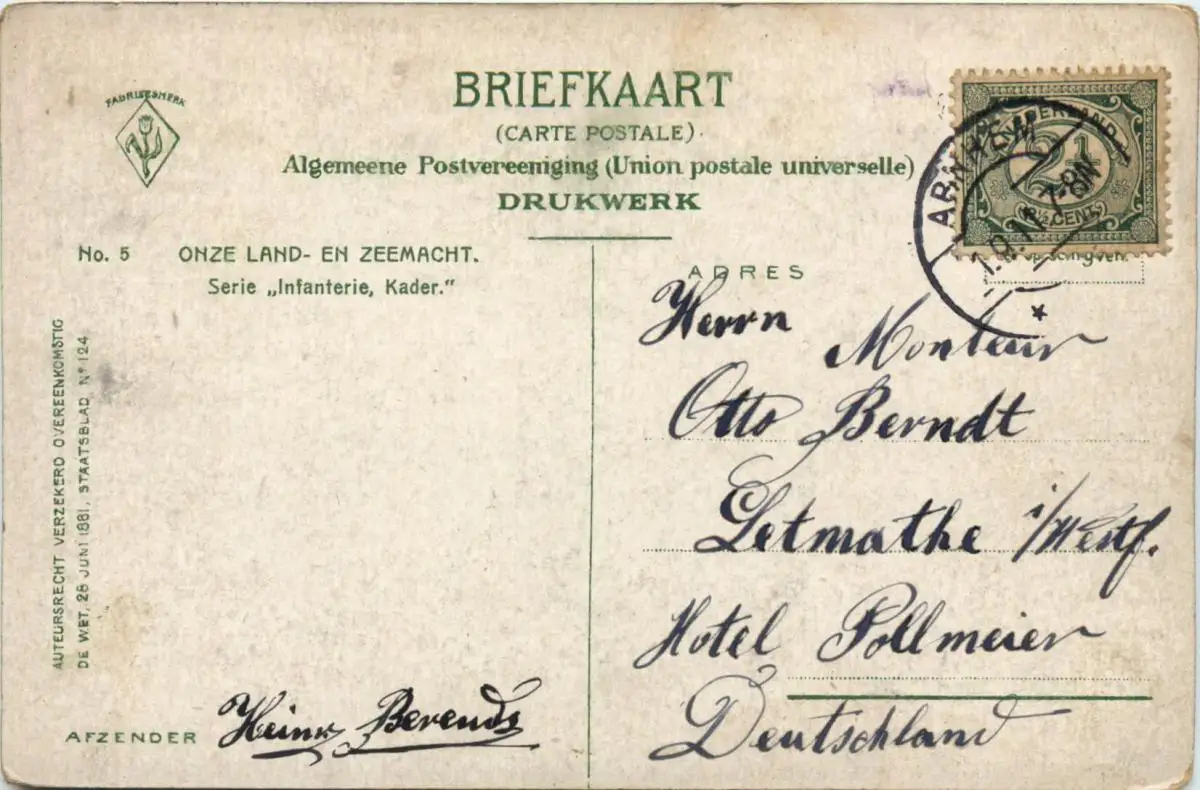 FABRIEKSMERK
BRIEFKAART
(CARTE POSTALE).
Algemeene Postvereeniging (Union postale universelle)
DRUKWERK
NEDERLAND
2½
(2½ CENT)
ARNHEM
7-8N
*
No. 5 ONZE LAND- EN ZEEMACHT.
Serie „Infanterie, Kader."
AUTEURSRECHT VERZEKERD OVEREENKOMSTIG
DE WET, 28 JUNI 1881, STAATSBLAD No 124
ADRES
Herrn Monteur
Otto Berndt
Letmathe i/Westf.
Hotel Pollmeier
Deutschland
AFZENDER Heinr Berends